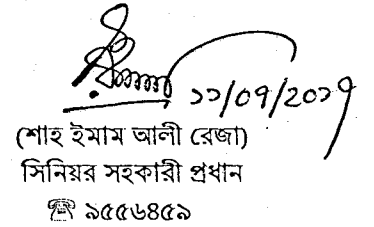 ১১/০৭/২০১৭
(শাহ ইমাম আলী রেজা)
সিনিয়র সহকারী প্রধান
☏ ৯৫৫৬৪৫৯